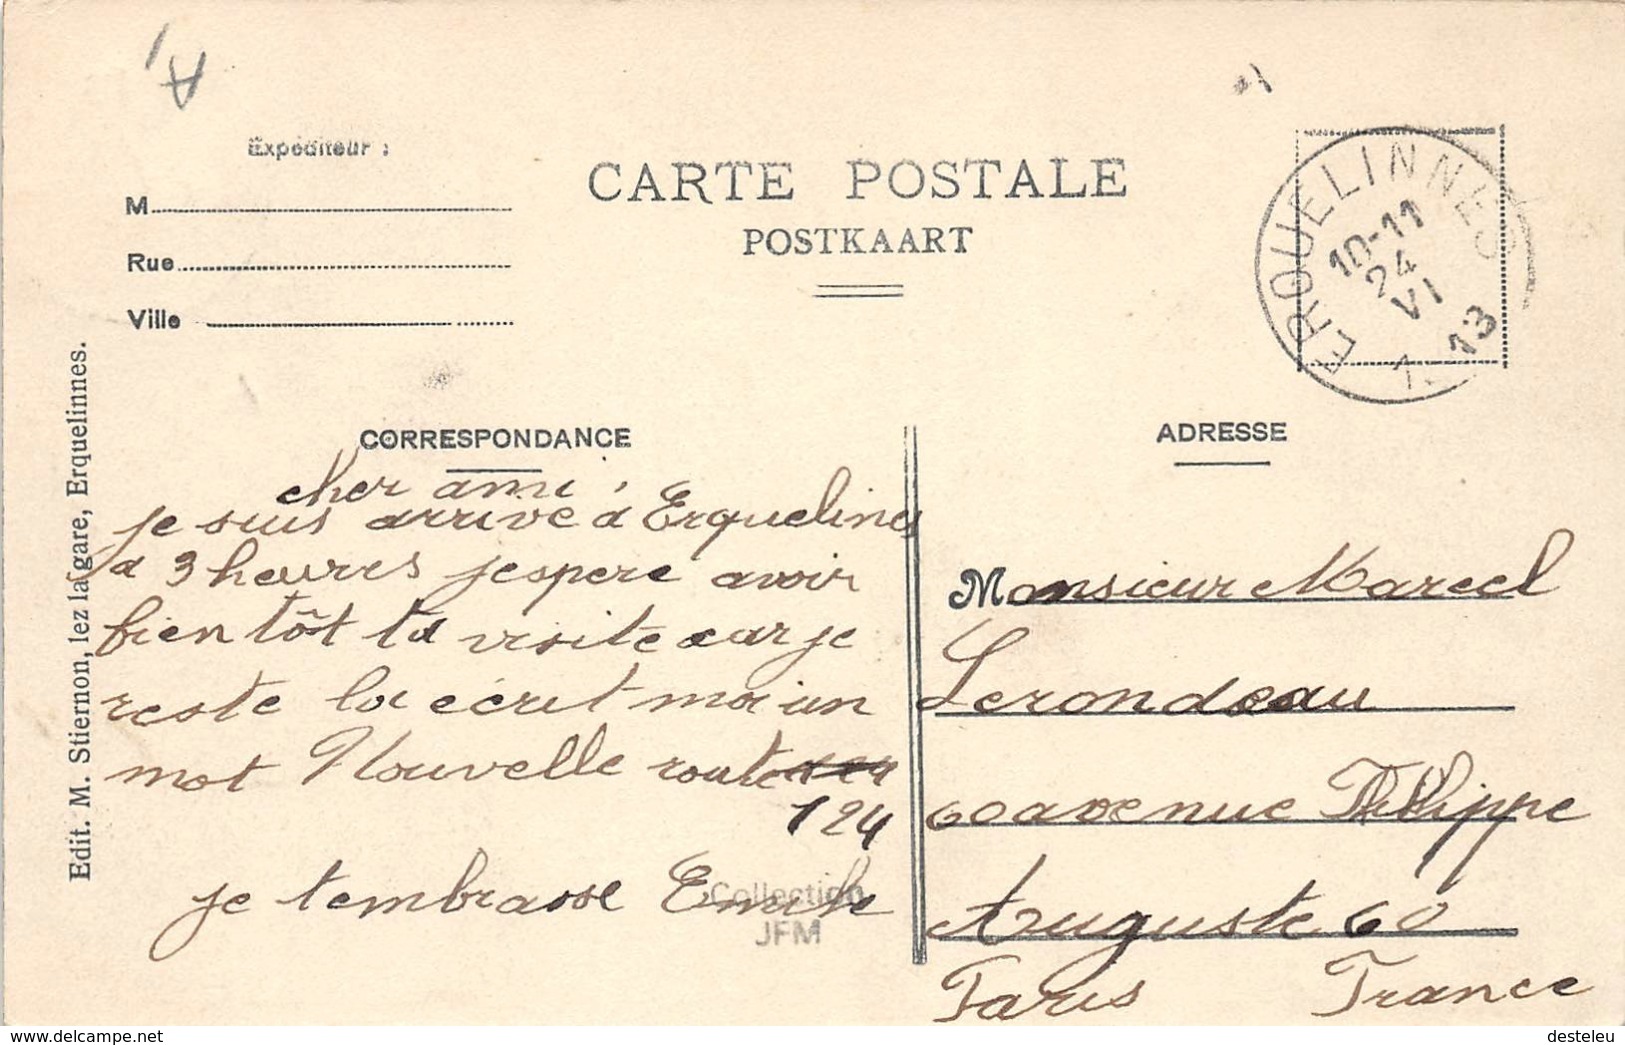 Expéditeur :
M
Rue
Ville
CARTE POSTALE
POSTKAART
ERQUELINNES
10-11
24
VI
13
Edit. M. Stiernon, lez la gare, Erquelinnes.
CORRESPONDANCE
cher ami,
je suis arrivé a Erquelines
a 3 heures jespere avoir
bientôt ta visite car je
reste la écrit moi un
mot Nouvelle route
124
je tembrasse Emile
Collection
JFM
ADRESSE
Monsieur Marcel
Lerondeau
60 avenue Philippe
Auguste 60
Paris France
www.delcampe.net
desteleu